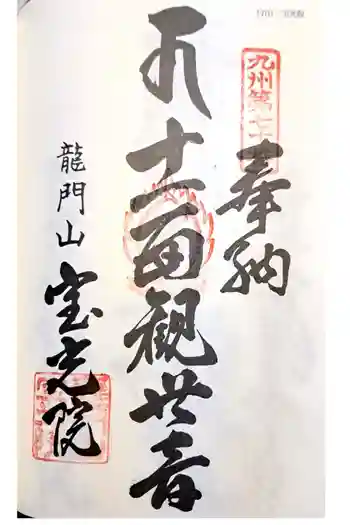 奉納
九州第七十
十一面観世音
龍門山
宝光院